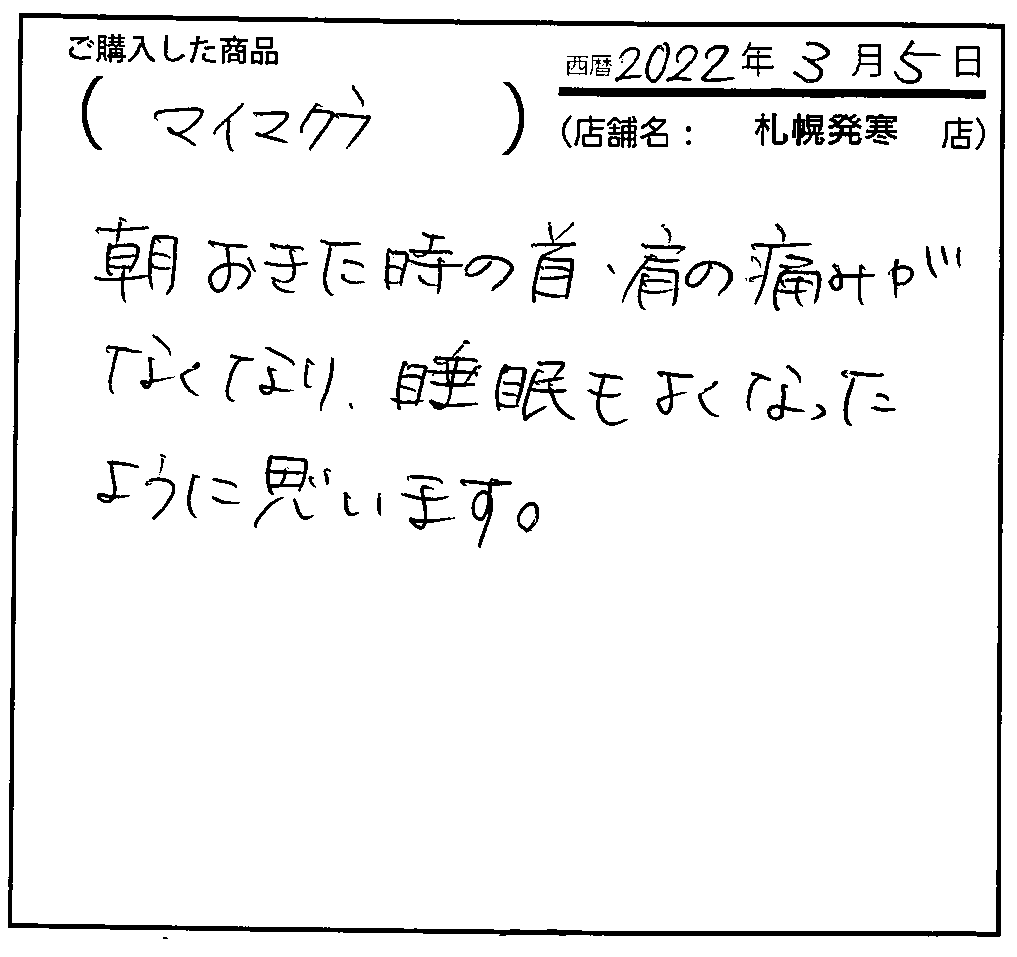 ご購入した商品
西暦2022年3月5日
(マイマクラ)
(店舗名： 札幌発寒 店)
朝おきた時の首、肩の痛みが
なくなり、睡眠もよくなった
ように思います。